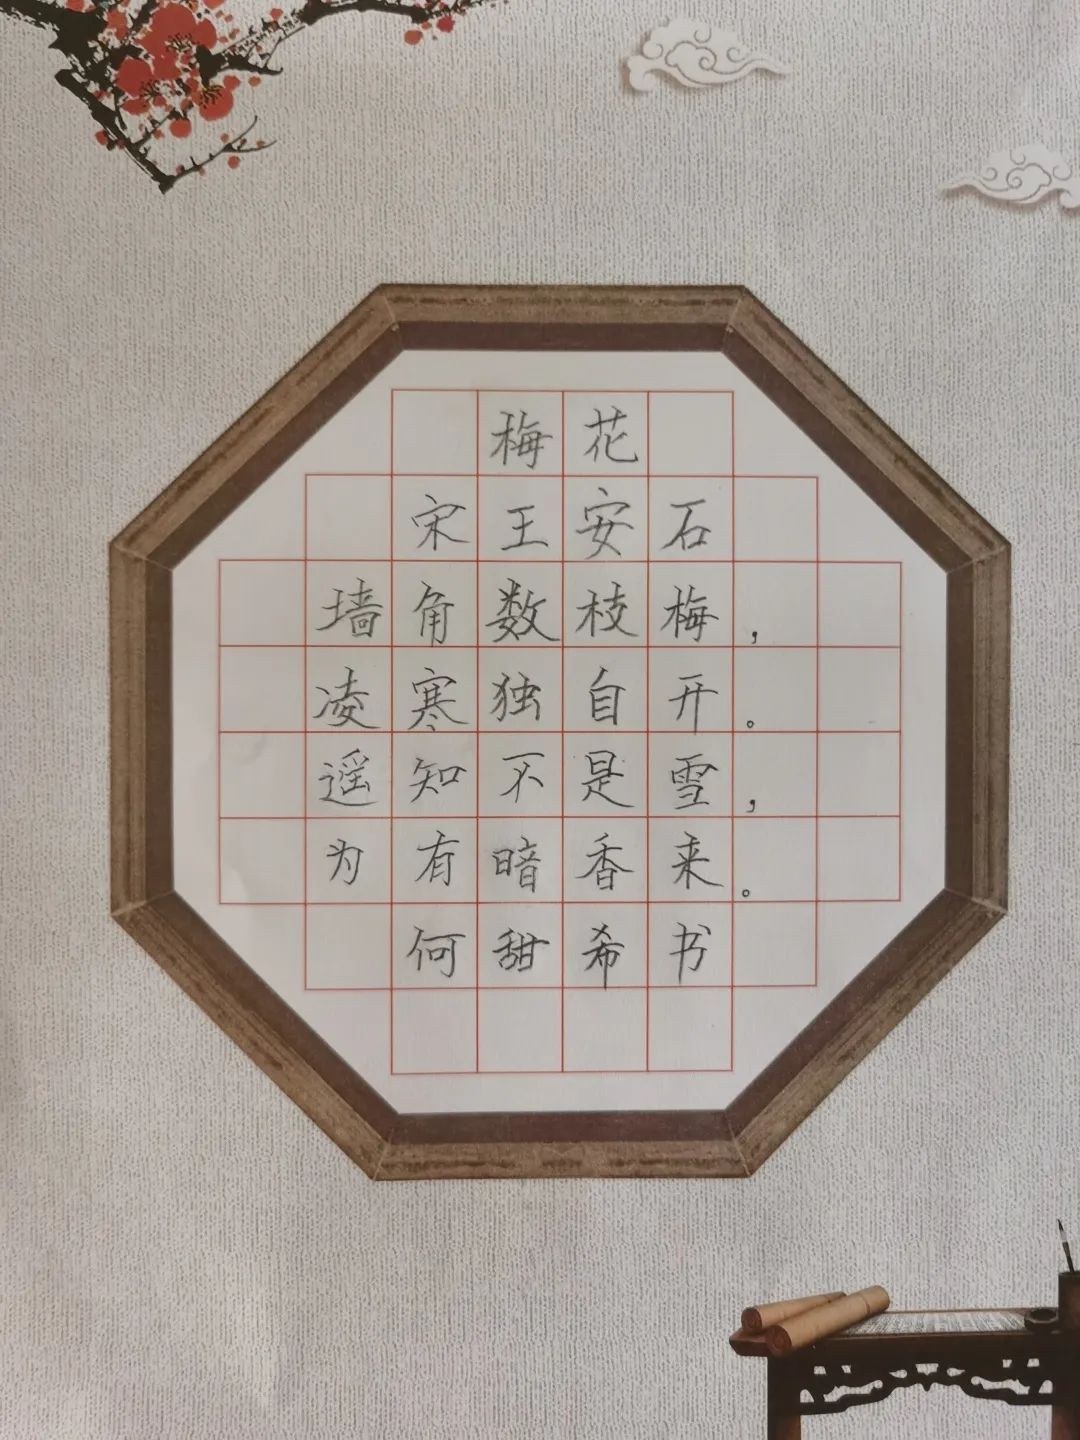 梅花
宋王安石
墙角数枝梅，
凌寒独自开。
遥知不是雪，
为有暗香来。
何甜希书